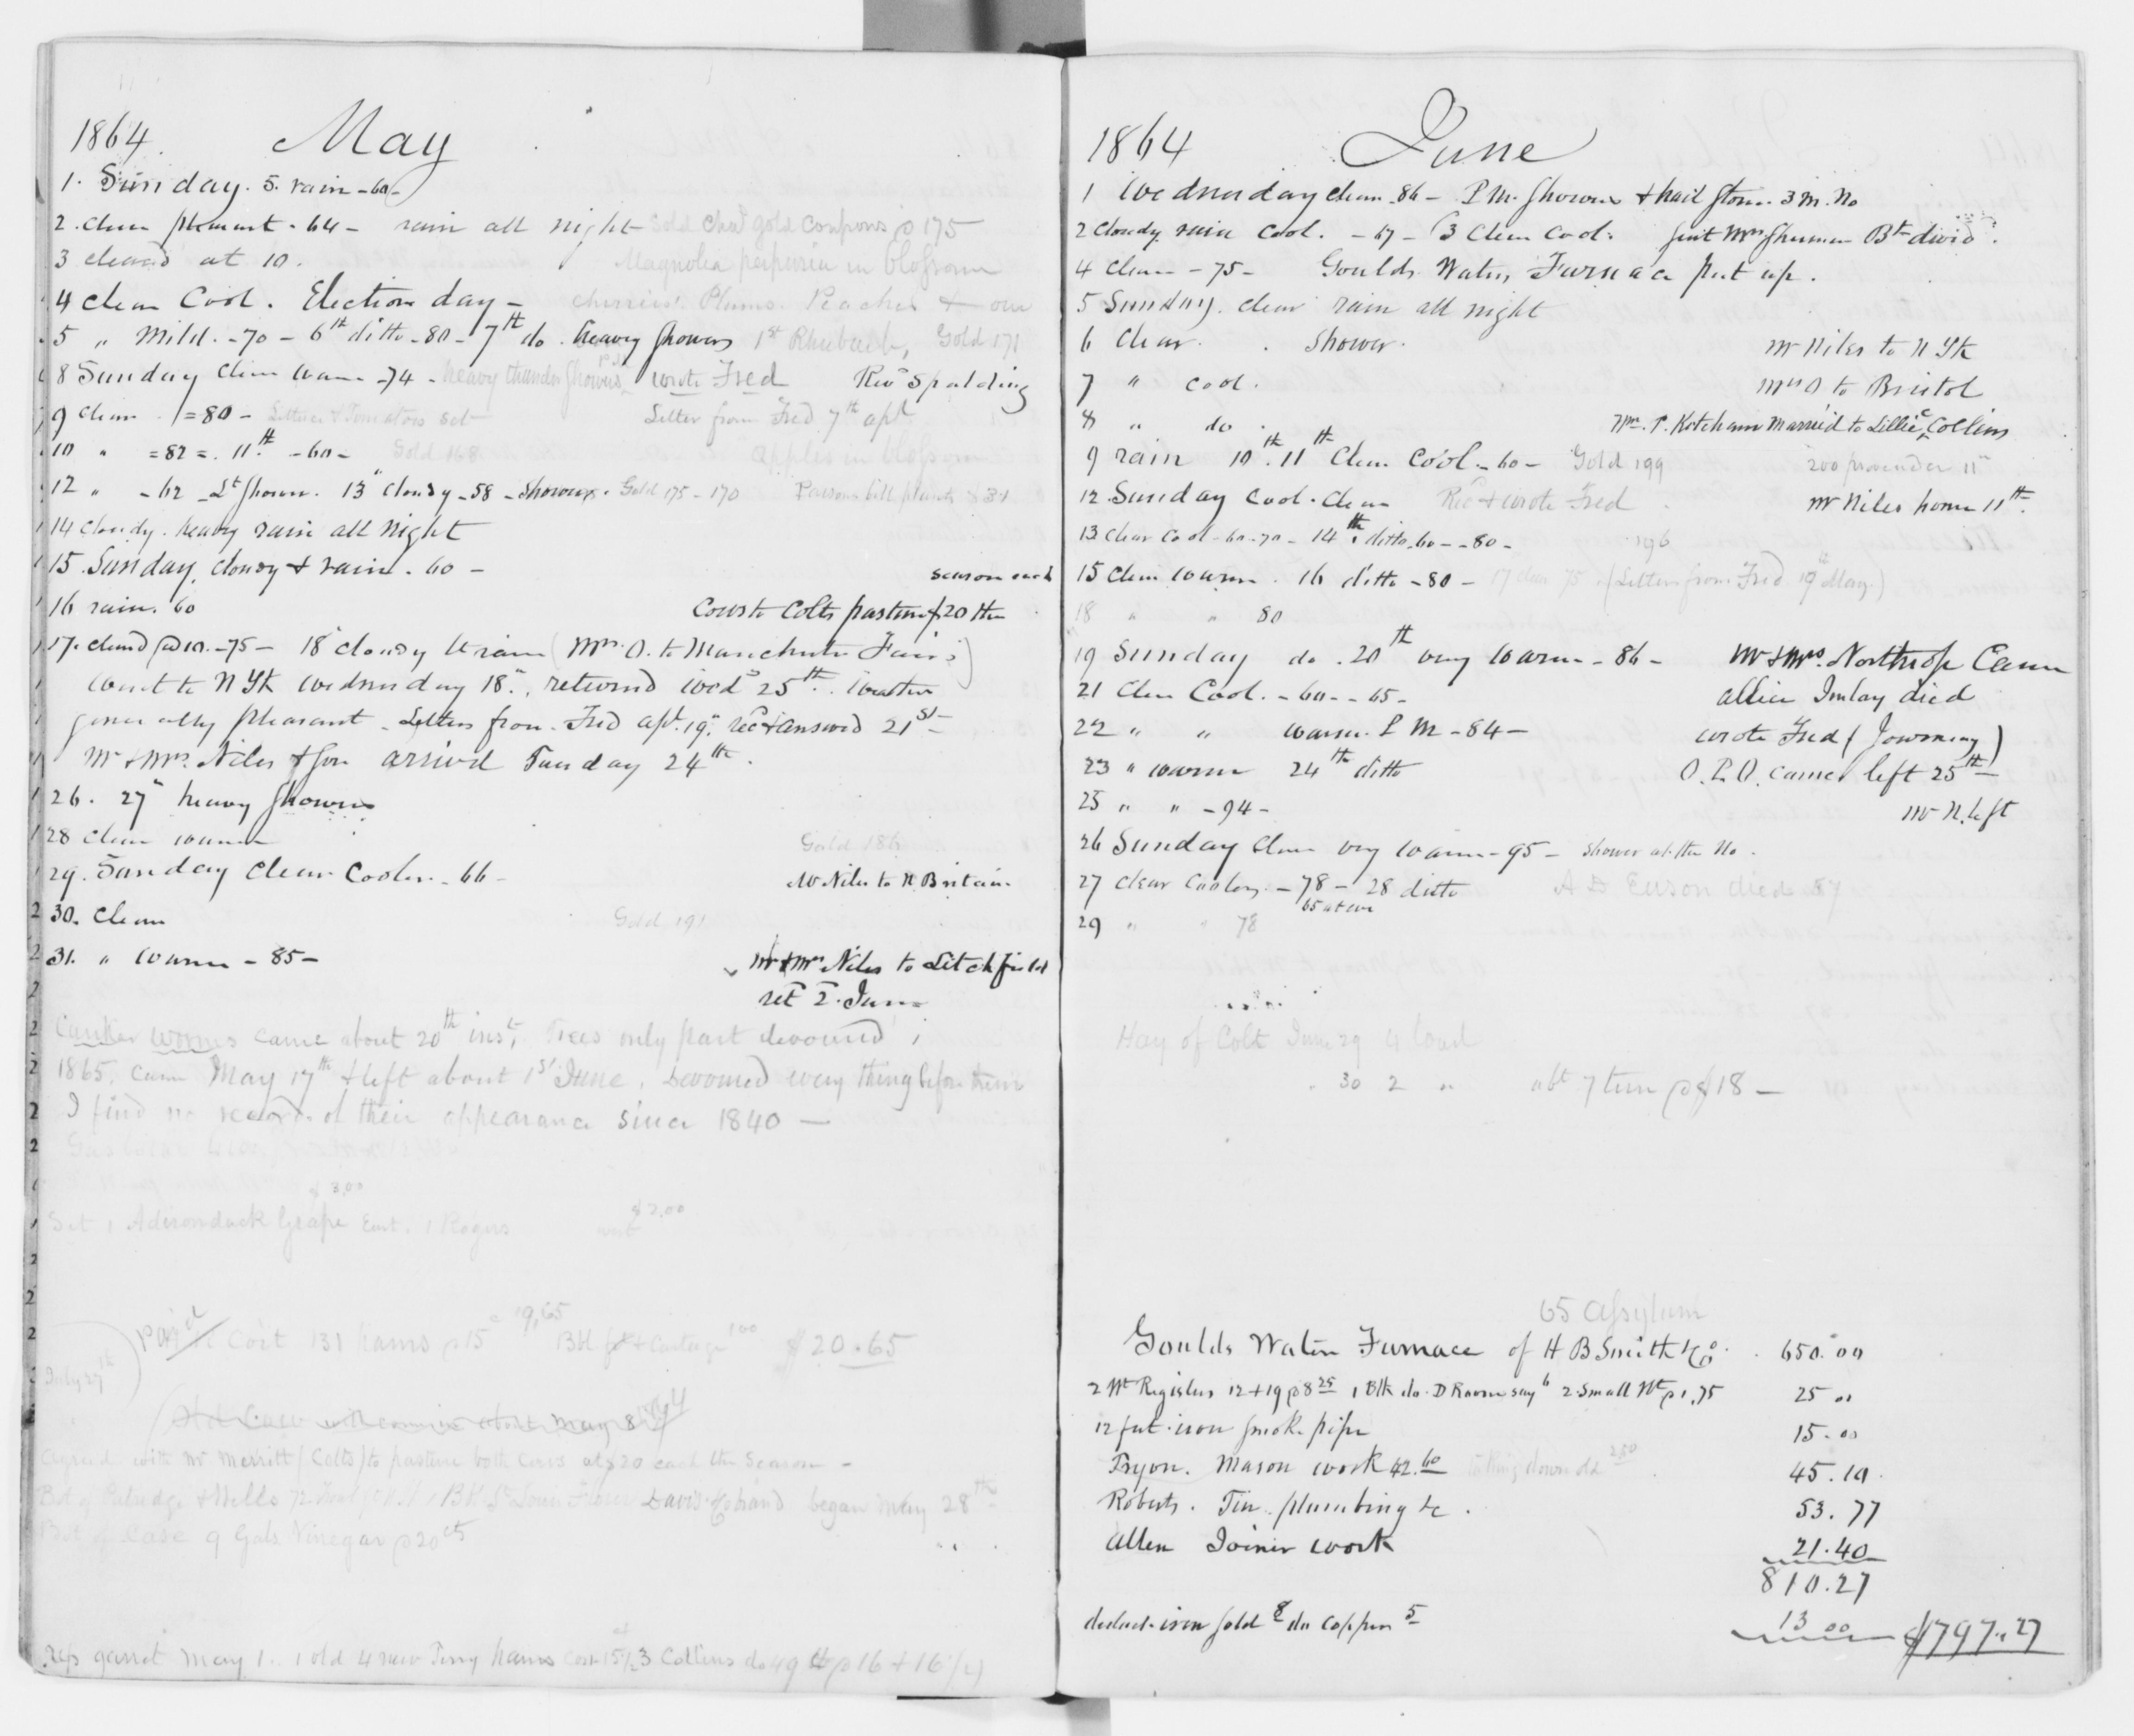 1864. May
1. Sunday. 5. rain - 60 -
2. Clear pleasant - 64 - rain all night Sold Chas gold coupons @ 175
3 cleared at 10. Magnolia purpuria in blossom
4 Clear Cool. Election day - cherries. Plums. Peaches +
5 " Mild. - 70 - 6th ditto - 80 - 7th do. heavy showers 1st Rhubarb, Gold 171
8 Sunday Clear warm - 74 - heavy thunder showers wrote Fred Revd Spalding
9 Clear = 80 - Lettuce & Tomatoes set Letter from Fred 7th apl
10 " = 82 = 11th - 60 - Gold 168 apples in blossom
12 " - 62 - Lt Shower. 13" Cloudy - 58 - Showers. Gold 175 - 170 Parsons bill plants
14 Cloudy. heavy rain all night
15. Sunday, cloudy & rain - 60 -
season each
16 rain. 60 Cows to Colts pasture $20 the
17. cleard @ 10. - 75 - 18" cloudy & rain (Mrs. O. to Manchester Fair)
Went to N Yk Wednesday 18", returned Wedy 25th. Weather
generally pleasant. Letters from Fred apl. 19" recd & answd 21st
Mr & Mrs. Niles & son arrived Tuesday 24th.
26. 27" heavy showers
28 Clear warm Gold 186
29. Sunday Clear Cooler - 66 - Mr Niles to N. Britain
30. Clear Gold 191
31. " warm - 85 - Mr & Mrs Niles to Litchfield
ret 2. June
Canker worms came about 20th inst, Trees only part devoured;
1865. came May 17th & left about 1st June. Devoured every thing before them
I find no record of their appearance since 1840 -
$3,00
Set 1 Adirondack Grape 1 Rogers $2,00
paid Colt 131 hams @ 15c 19,65 Bbl & Cartage 1 00 $20.65
July 27th
Agreed with Mr Merritt (Colts) to pasture both Cows at $20 each the Season -
Bot of & Wells 72 began May 28th
Bot of Case 9 Gals Vinegar @ 20cts
garret May 1. 1 old 4 new Terry hams cost 15½ 3 Collins do 49 lb @ 16 & 16½
1864 June
1 Wednesday Clear - 86 - P.M. Shower & hail storm 3 m. No
2 Cloudy rain Cool. - 67 - (3 Clear Cool. sent Mrs Shuman Bk divid.
4 Clear - 75 - Goulds Water Furnace put up.
5 Sunday. clear rain all night
6 Clear. Shower. Mr Niles to N Yk
7 " cool. Mrs O to Bristol
8 " do. Wm. P. Ketcham married to Lillie C Collins
9 rain 10th. 11th Clear Cool. - 60 - Gold 199 200 provender 11"
12 Sunday Cool. Clear Recd & wrote Fred Mr Niles home 11th.
13 Clear Cool - 60 - 70 - 14th. ditto - 60 - - 80 - 196
15 Clear warm. 16 ditto - 80 - 17 clear 75. (Letter from Fred 19th May.)
18 " " 80
19 Sunday do. 20th very warm - 86 - Mr & Mrs. Northrop Came
21 Clear Cool. - 60 - - 65 - allice Imlay died
22 " " warm. P M - 84 - wrote Fred
23 " warm 24th ditto O. P. O. came & left 25th
25 " " - 94 - Mr N. left
26 Sunday Clear very warm - 95 - Shower at the No.
27 Clear Cooler. - 78 - 28 ditto A D Euson died 87
65 at eve
29 " " 78
Hay of Colt June 29 4 load
" 30 2 " abt 7 tun @ $18 -
65 Assylum
Goulds Water Furnace of H B Smith & Co. 650.00
2 Wt Registers 12 + 19 @ 8 25 1 Blk do. D Room say 6 2 Small Wt @ 1.75 25 00
12 feet iron smoke pipe 15.00
Tryon. Mason work 42.60 taking down old 2,50 45.10
Roberts. Tin. plumbing &c. 53.77
Allen Joiner work 21.40
810.27
deduct iron sold 8 do Copper 5 13 00 $797.27